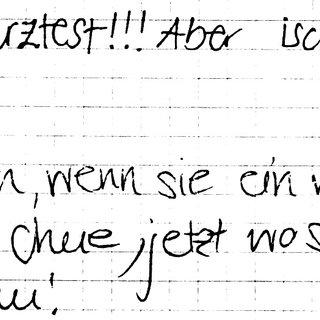 urztest!!! Aber isc
n, wenn sie ein
chue, jetzt wos